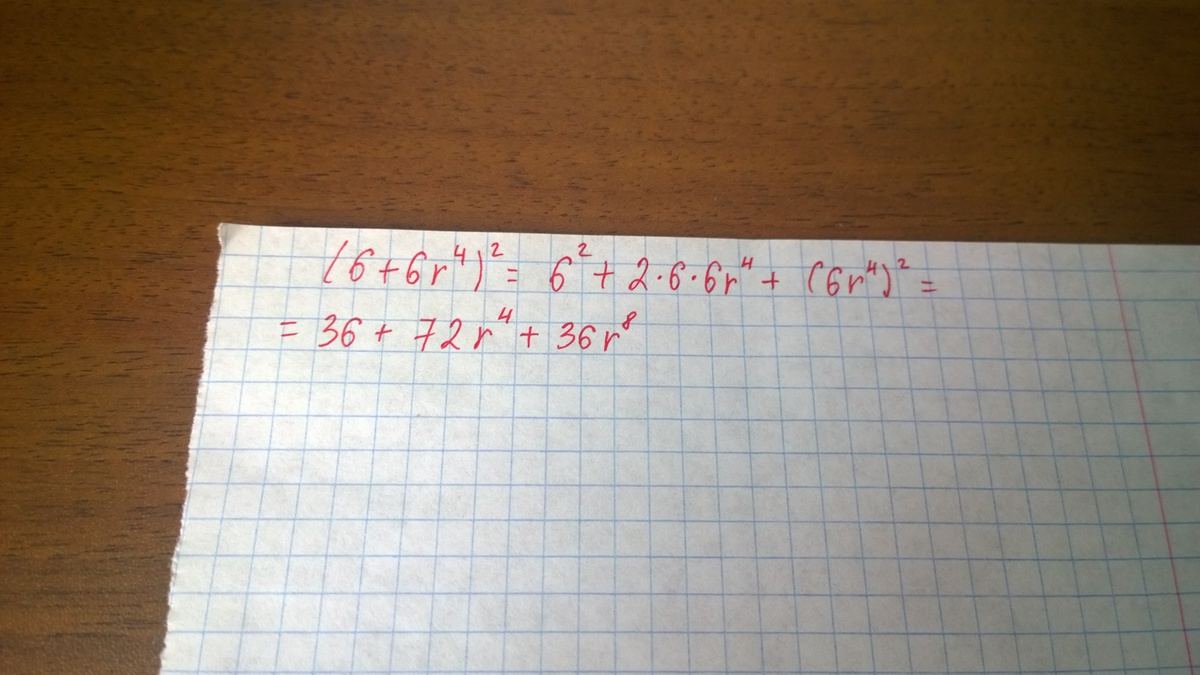 (6+6r⁴)² = 6² + 2·6·6r⁴ + (6r⁴)² =
= 36 + 72r⁴ + 36r⁸